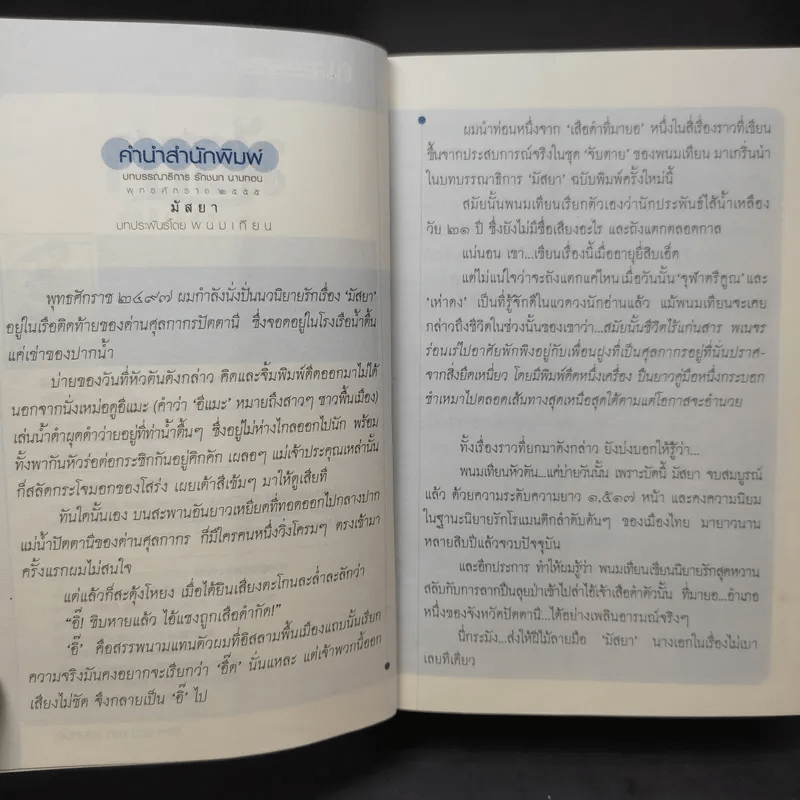 คำนำสำนักพิมพ์
บทบรรณาธิการ รักชนก นามทอน
พุทธศักราช ๒๕๕๕
มัสยา
บทประพันธ์โดย พนมเทียน
พุทธศักราช ๒๔๙๗ ผมกำลังนั่งปั่นนวนิยายรักเรื่อง ‘มัสยา’
อยู่ในเรือติดท้ายของด่านศุลกากรปัตตานี ซึ่งจอดอยู่ในโรงเรือน้ำตื้น
แค่เข่าของปากน้ำ
บ่ายของวันที่หัวตันดังกล่าว คิดและจิ้มพิมพ์ดีดออกมาไม่ได้
นอกจากนั่งเหม่อดูอิแมะ (คำว่า ‘อิแมะ’ หมายถึงสาวๆ ชาวพื้นเมือง)
เล่นน้ำดำผุดดำว่ายอยู่ที่ท่าน้ำตื้นๆ ซึ่งอยู่ไม่ห่างไกลออกไปนัก พร้อม
ทั้งพากันหัวร่อต่อกระซิกกันอยู่คิกคัก เผลอๆ แม่เจ้าประคุณเหล่านั้น
ก็สลัดกระโจมอกของโสร่ง เผยเต้าสีเข้มๆ มาให้ดูเสียที
ทันใดนั้นเอง บนสะพานอันยาวเหยียดที่ทอดออกไปกลางปาก
แม่น้ำปัตตานีของด่านศุลกากร ก็มีใครคนหนึ่งวิ่งโครมๆ ตรงเข้ามา
ครั้งแรกผมไม่สนใจ
แต่แล้วก็สะดุ้งโหยง เมื่อได้ยินเสียงตะโกนละล่ำละลักว่า
“อี๊! ชิบหายแล้ว ไอ้แซงถูกเสือดำกัด!”
‘อี๊’ คือสรรพนามแทนตัวผมที่อิสลามพื้นเมืองแถบนั้นเรียก
ความจริงมันคงอยากจะเรียกว่า ‘อี๊ด’ นั่นแหละ แต่เจ้าพวกนี้ออก
เสียงไม่ชัด จึงกลายเป็น ‘อี๊’ ไป
ผมนำท่อนหนึ่งจาก ‘เสือดำที่มายอ’ หนึ่งในสี่เรื่องราวที่เขียน
ขึ้นจากประสบการณ์จริงในชุด ‘จับตาย’ ของพนมเทียน มาเกริ่นนำ
ในบทบรรณาธิการ ‘มัสยา’ ฉบับพิมพ์ครั้งใหม่นี้
สมัยนั้นพนมเทียนเรียกตัวเองว่านักประพันธ์ไส้น้ำเหลือง
วัย ๒๑ ปี ซึ่งยังไม่มีชื่อเสียงอะไร และถังแตกตลอดกาล
แน่นอน เขา...เขียนเรื่องนี้เมื่ออายุยี่สิบเอ็ด
แต่ไม่แน่ใจว่าจะถังแตกแค่ไหน เมื่อวันนั้น ‘จุฬาตรีคูณ’ และ
‘เห่าดง’ เป็นที่รู้จักดีในแวดวงนักอ่านแล้ว แม้พนมเทียนจะเคย
กล่าวถึงชีวิตในช่วงนั้นของเขาว่า...สมัยนั้นชีวิตไร้แก่นสาร พเนจร
ร่อนเร่ไปอาศัยพักพิงอยู่กับเพื่อนฝูงที่เป็นศุลกากรอยู่ที่นั่นปราศ-
จากสิ่งยึดเหนี่ยว โดยมีพิมพ์ดีดหนึ่งเครื่อง ปืนยาวคู่มือหนึ่งกระบอก
ซ้ำเหมาไปตลอดเส้นทางสุดเหนือสุดใต้ตามแต่โอกาสจะอำนวย
ทั้งเรื่องราวที่ยกมาดังกล่าว ยังบ่งบอกให้รู้ว่า...
พนมเทียนหัวตัน...แค่บ่ายวันนั้น เพราะบัดนี้ มัสยา จบสมบูรณ์
แล้ว ด้วยความระดับความยาว ๑,๕๑๗ หน้า และคงความนิยม
ในฐานะนิยายรักโรแมนติกลำดับต้นๆ ของเมืองไทย มายาวนาน
หลายสิบปีแล้วจวบปัจจุบัน
และอีกประการ ทำให้ผมรู้ว่า พนมเทียนเขียนนิยายรักสุดหวาน
สลับกับการลากปืนลุยป่าเข้าไปล่าไอ้เจ้าเสือดำตัวนั้น ที่มายอ...อำเภอ
หนึ่งของจังหวัดปัตตานี...ได้อย่างเพลินอารมณ์จริงๆ
นี่กระมัง...ส่งให้ฝีไม้ลายมือ ‘มัสยา’ นางเอกในเรื่องไม่เบา
เลยทีเดียว